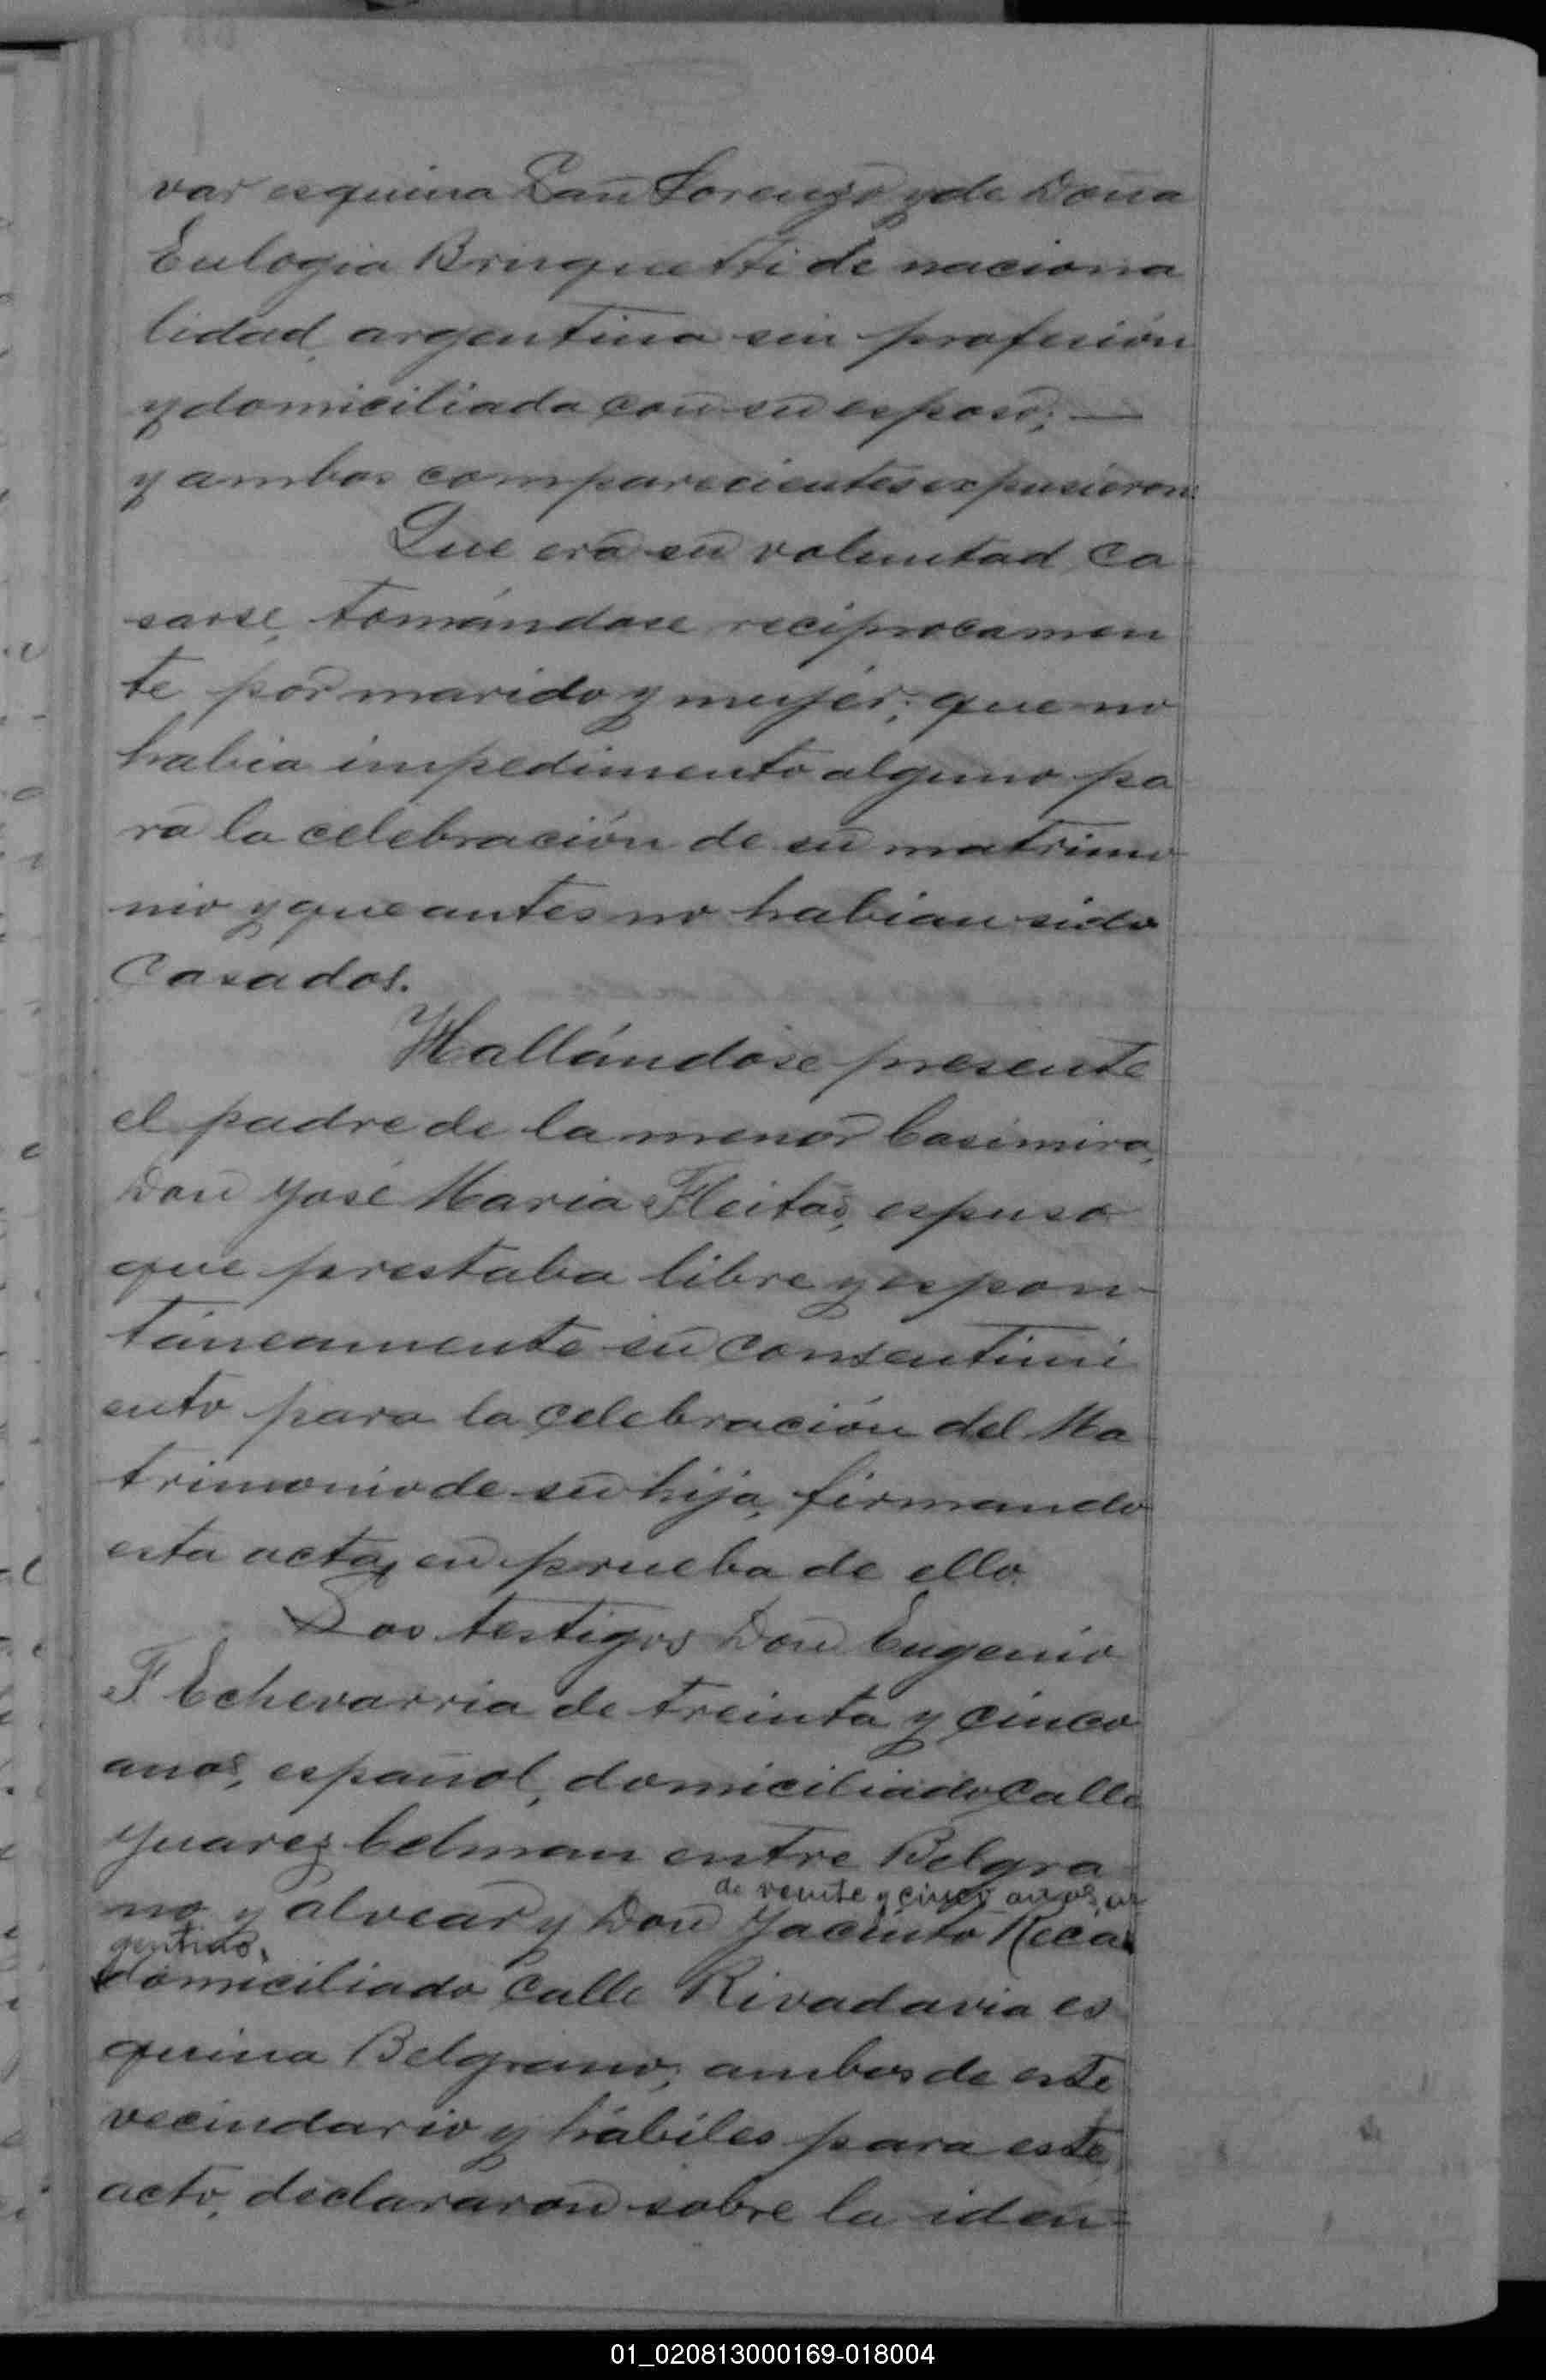 var esquina San Lorenzo y de Doña
Eulogia Brinquetti de naciona
lidad argentina sin profesión
y domiciliada con su esposo; —
y ambos comparecientes expusieron:
Que era su voluntad ca
sarse, tomándose reciprocamen
te por marido y mujer; que no
habia impedimento alguno pa
ra la celebración de su matrimo
nio y que antes no habian sido
Casados.
Hallándose presente
el padre de la menor Casimira,
Don José Maria Fleitas, espuso
que prestaba libre y espon-
táneamente su consentimi
ento para la celebración del Ma
trimonio de su hija, firmando
esta acta, en prueba de ello.
Los testigos Don Eugenio
F Echevarria de treinta y cinco
anos, español, domiciliado Calle
Juarez Celman entre Belgra
de veinte y cinco años, ar
no y alvear y Don Jacinto Reca
gentino,
domiciliado Calle Rivadavia es
quina Belgrano; ambos de este
vecindario y hábiles para este
acto, declararon sobre la iden=
01_020813000169-018004